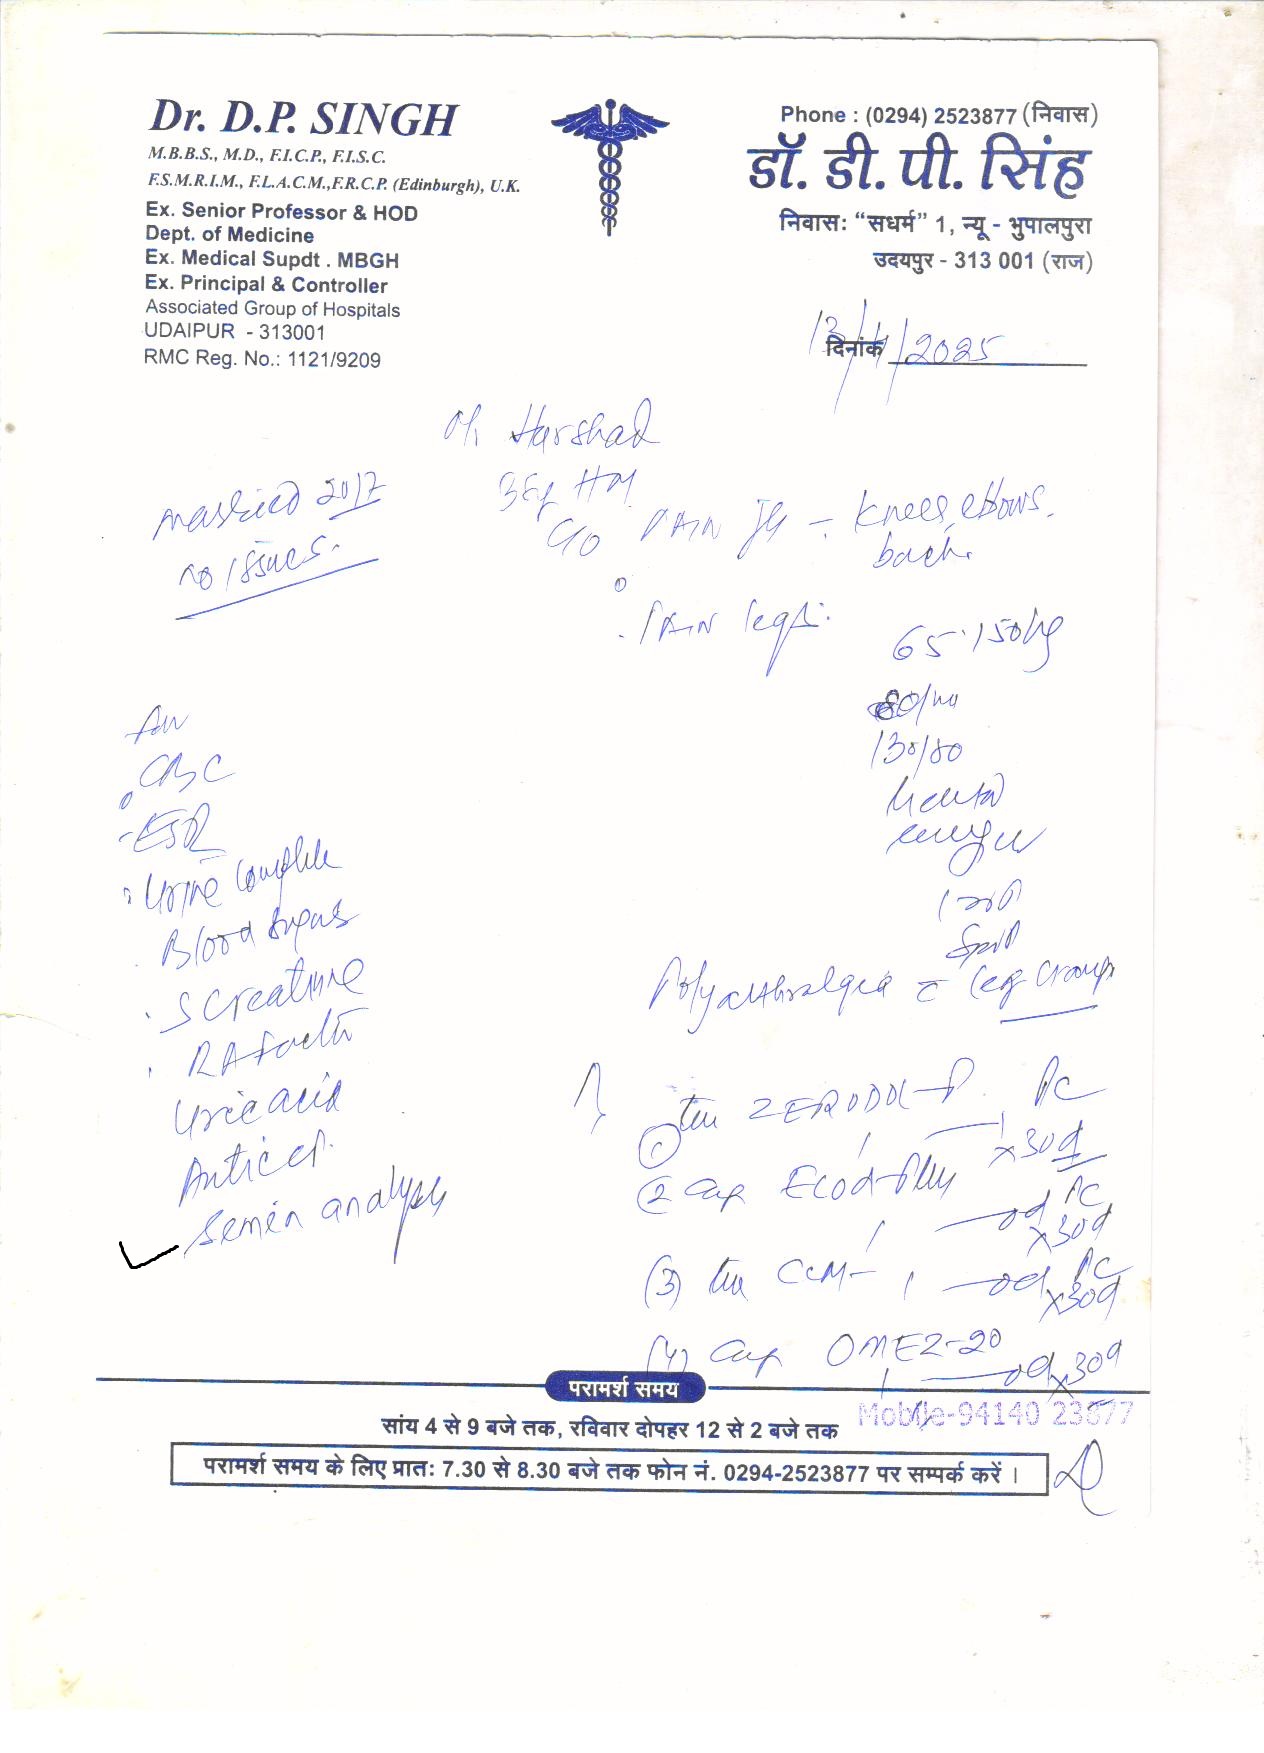 Dr. D.P. SINGH
M.B.B.S., M.D., F.I.C.P., F.I.S.C.
F.S.M.R.I.M., F.L.A.C.M.,F.R.C.P. (Edinburgh), U.K.
Ex. Senior Professor & HOD
Dept. of Medicine
Ex. Medical Supdt . MBGH
Ex. Principal & Controller
Associated Group of Hospitals
UDAIPUR - 313001
RMC Reg. No.: 1121/9209
Phone : (0294) 2523877 (निवास)
डॉ. डी. पी. सिंह
निवास: “सधर्म” 1, न्यू - भुपालपुरा
उदयपुर - 313 001 (राज)
दिनांक /2025
Harshad
married 2017
no issues.
C/O PAIN - Knees, elbows.
back.
PAIN legs.
65.150kg
80/
130/80
CBC
ESR
Urine Complete
Blood Sugar
S Creatinine
RA factor
Uric acid
Anti ccp.
Semen analysis
Polyarthralgia c leg cramps
1 ZERODOL-P PC
x 30d
2 Cap PC
1 — od x 30d
(3) CCM - 1 — od PC
x 30d
(4) Cap OMEZ-20
1 — od x 30d
परामर्श समय
सांय 4 से 9 बजे तक, रविवार दोपहर 12 से 2 बजे तक
Mobile-94140 23877
परामर्श समय के लिए प्रातः 7.30 से 8.30 बजे तक फोन नं. 0294-2523877 पर सम्पर्क करें ।